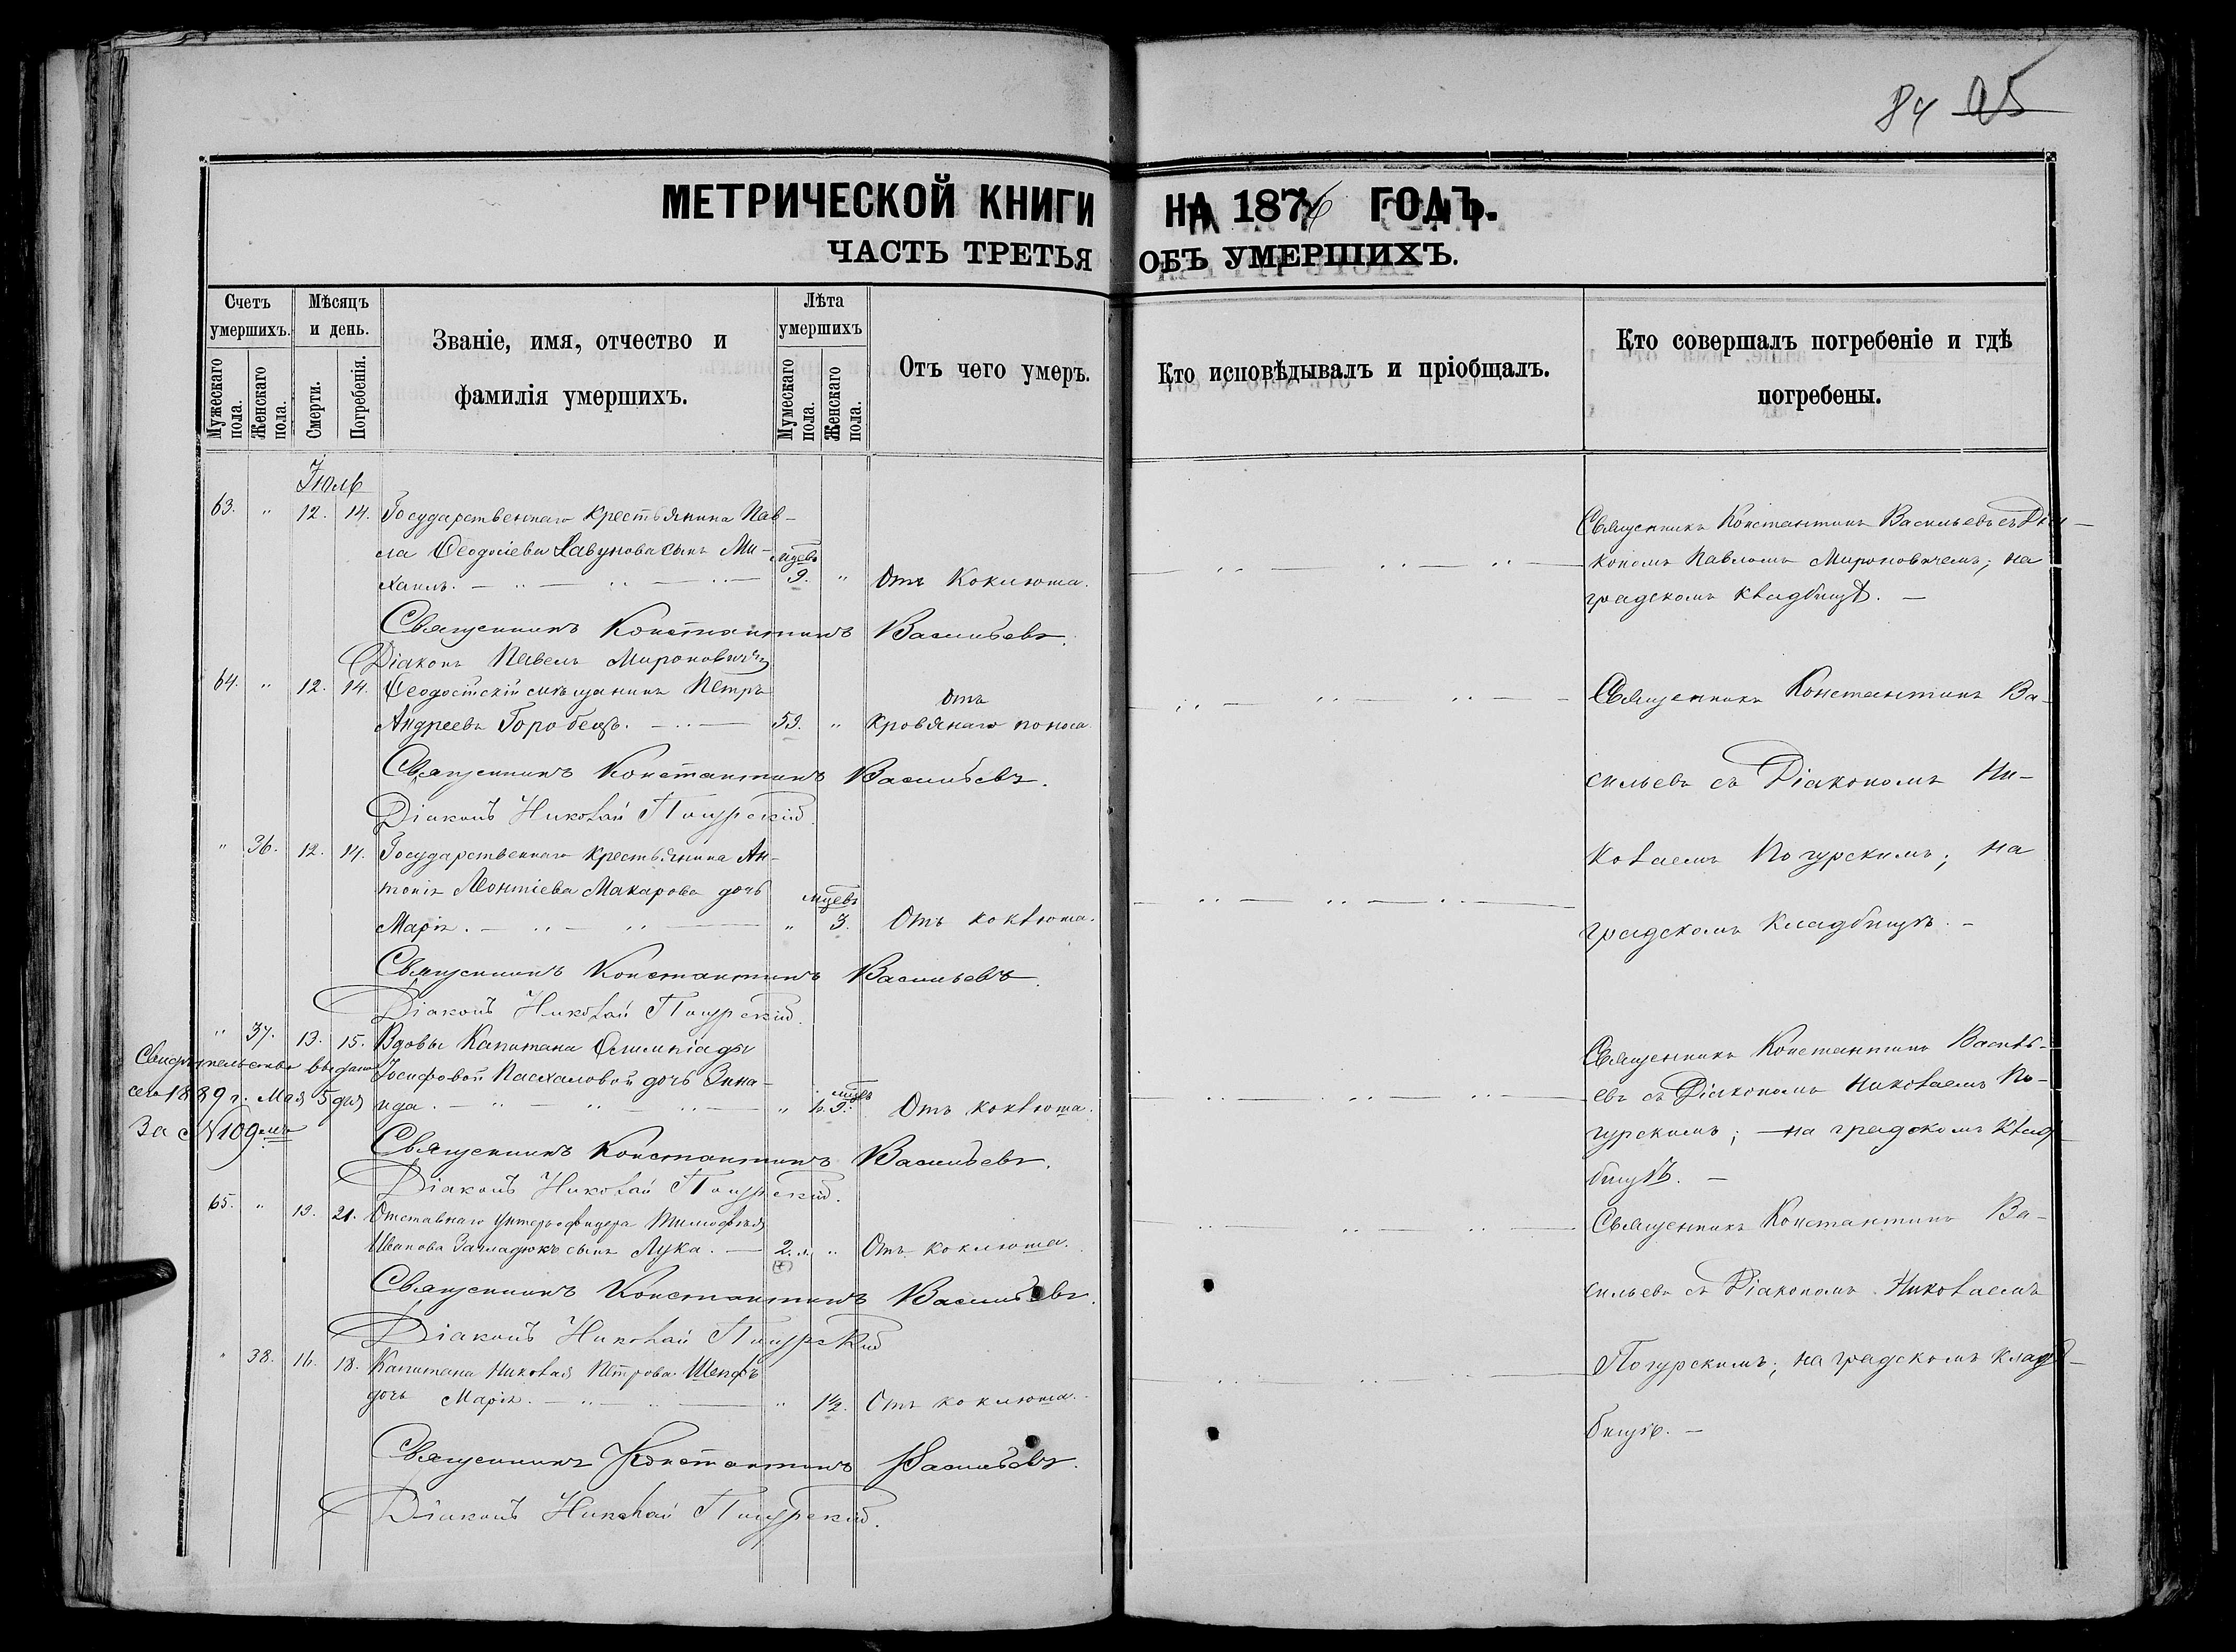 84 95
МЕТРИЧЕСКОЙ КНИГИ НА 1876 ГОДЪ.
ЧАСТЬ ТРЕТЬЯ ОБЪ УМЕРШИХЪ.
Счетъ умершихъ.
Мужескаго пола.
Женскаго пола.
Мѣсяцъ и день.
Смерти.
Погребенія.
Званіе, имя, отчество и
фамилія умершихъ.
Лѣта умершихъ
Мужескаго пола.
Женскаго пола.
Отъ чего умеръ.
Кто исповѣдывалъ и пріобщалъ.
Кто совершалъ погребеніе и гдѣ
погребены.
Іюль
63. " 12. 14. Государственнаго крестьянина Пав-
ла Ѳеодосіева Кавунова сынъ Ми- мцевъ
хаилъ. 9. " Отъ Коклюша.
Священникъ Константинъ Васильевъ съ Діа-
кономъ Павломъ Мироновичемъ; на
градскомъ кладбищѣ. —
Священникъ Константинъ Васильевъ.
Діаконъ Павелъ Мироновичъ
64. " 12. 14. Ѳеодосійскій мѣщанинъ Петръ
Андреевъ Горобецъ. 59. " Отъ кровянаго поноса
Священникъ Константинъ Ва-
сильевъ съ Діакономъ Ни-
колаемъ Погурскимъ; на
градскомъ кладбищѣ. —
Священникъ Константинъ Васильевъ.
Діаконъ Николай Погурскій.
" 36. 12. 14. Государственнаго крестьянина Ан-
тонія Леонтіева Макарова дочь мцевъ
Марія. " 3. Отъ коклюша.
Священникъ Константинъ Васильевъ.
Діаконъ Николай Погурскій.
" 37. 13. 15. Вдовы Капитана Олимпіады
Іосифовой Пасхаловой дочь Зина- мцевъ
ида. " 9. Отъ коклюша.
Свидѣтельство выдано
сего 1889 г. Мая 5 дня
За № 109мъ
Священникъ Константинъ Василь-
евъ съ Діакономъ Николаемъ По-
гурскимъ; — на градскомъ клад-
бищѣ. —
Священникъ Константинъ Васильевъ.
Діаконъ Николай Погурскій.
65. " 19. 21. Отставнаго унтеръ-офицера Тимофѣя
Иванова сынъ Лука. 2. " Отъ коклюша.
Священникъ Константинъ Ва-
сильевъ съ Діакономъ Николаемъ
Погурскимъ; на градскомъ клад-
бищѣ. —
Священникъ Константинъ Васильевъ.
Діаконъ Николай Погурскій
" 38. 16. 18. Капитана Николая Петрова
дочь Марія. " 1½. Отъ коклюша.
Священникъ Константинъ Васильевъ.
Діаконъ Николай Погурскій.